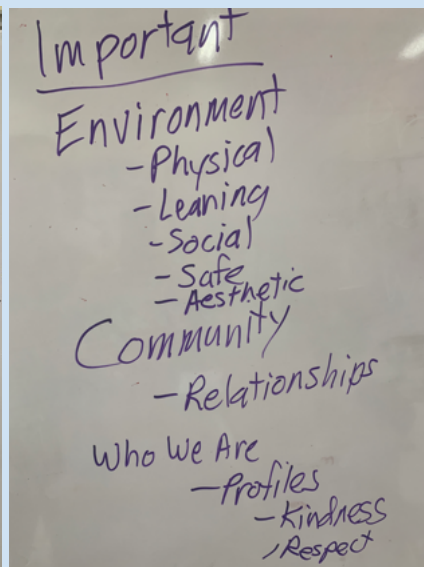 Important
Environment
- Physical
- Leaning
- Social
- Safe
- Aesthetic
Community
- Relationships
Who We Are
- Profiles
- Kindness
, Respect